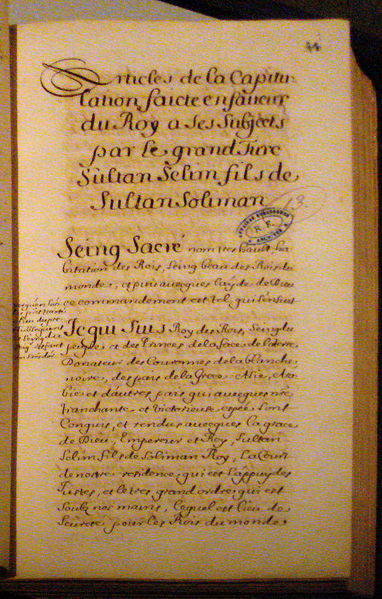 44
Articles de la Capitu-
lation faicte en faveur
du Roy a ses Subgects
par le grand Turc
Sultan Selim fils de
Sultan Soliman
13.
R. F.
ARCHIVES
Seing Sacré nom tres hault ha-
bitation des Rois, Seing beau des Rois du
monde, et puis avecques l'ayde de Dieu
ce commandement est tel, qui s'ensuit
Je qui suis Roy des Rois, Seing du
et des Princes de la face de la terre
Donateur des Couronnes de la blanche
noire, des pars de la Grece Asie, Ara-
bie et d'autres pars qui avecques nre
tranchante et victorieuse espée sont
Conquis, et rendus avecques la grace
de Dieu, Empereur et Roy, Sultan
Selim fils de Soliman Roy, La Court
de nostre residence qui est l'appuy des
Justes, et le tres grand ordre qui est
soubz nos mains, lequel est lieu de
Seureté pour les Rois du monde